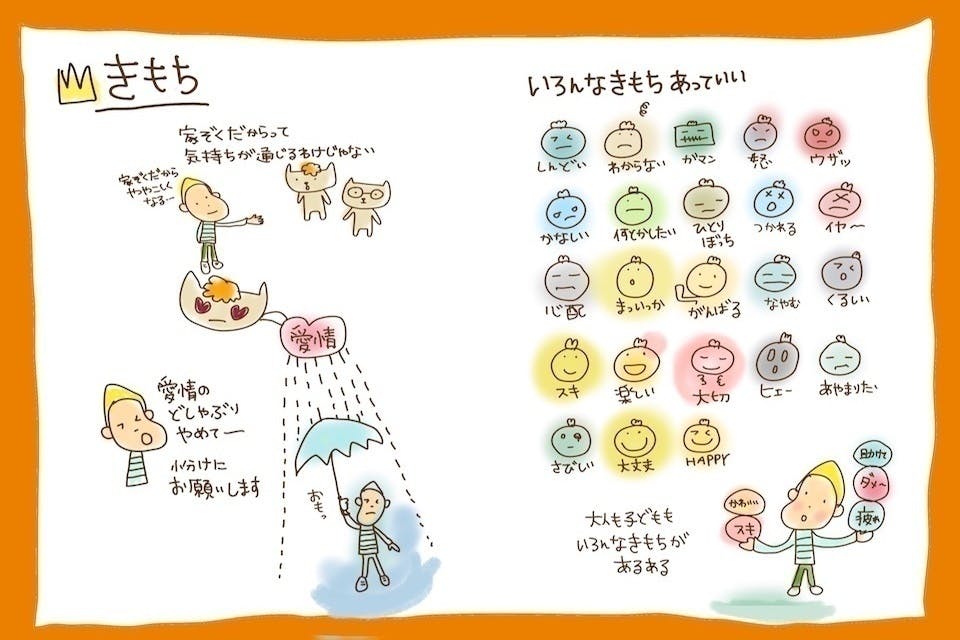 きもち
家ぞくだからって
気持ちが通じるわけじゃない
家ぞくだから
ややこしく
なるー
愛情
愛情の
どしゃぶり
やめてー
小分けに
お願いします
おもっ
いろんなきもち あっていい
しんどい
わからない
ガマン
怒
ウザッ
かなしい
何とかしたい
ひとり
ぼっち
つかれる
イヤ〜
心配
まっいっか
がんばる
なやむ
くるしい
スキ
楽しい
大切
ヒェー
あやまりたい
さびしい
大丈夫
HAPPY
大人も子どもも
いろんなきもちが
あるある
かわいい
スキ
助けて
ダメ〜
疲れ